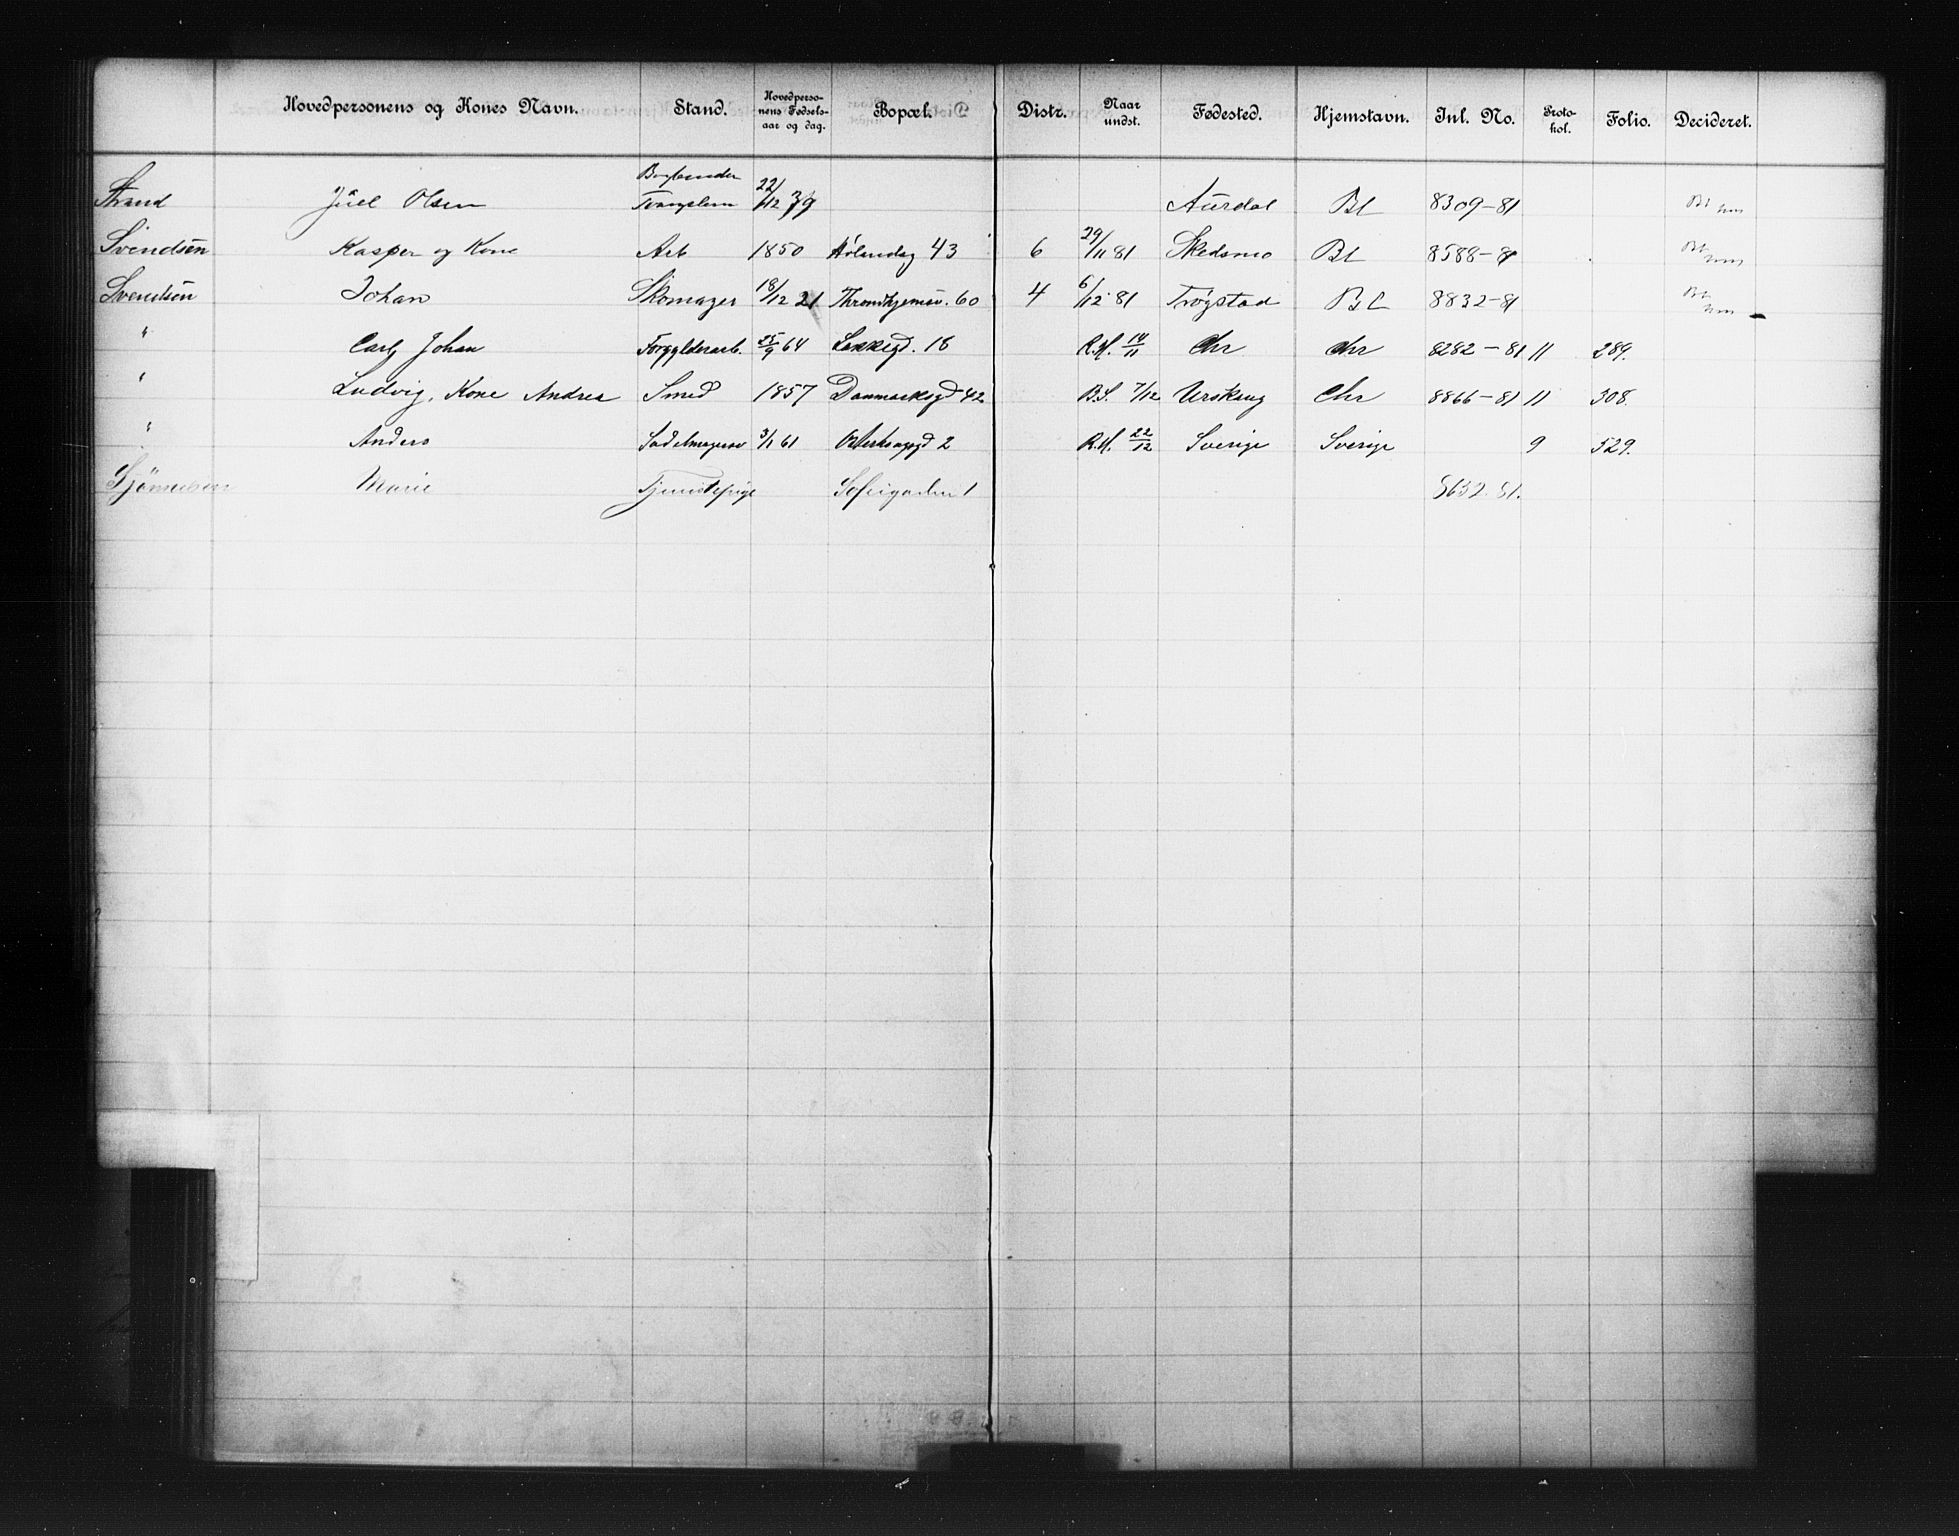 Hovedpersonens og Kones Navn. Stand. Hovedperso-nens Fødsels-aar og dag. Bopæl. Distr. Naar undst. Fødested. Hjemstavn. Inl. No. Proto-kol. Folio. Decideret.
Strand Juel Olsen Bogbinder 22/12 39 Aurdal Bl 8309-81 Bl
Svendsen Kasper og Kone Arb 1850 43 6 29/11 81 Skedsmo Bl 8588-8 Bl
Svendsen Johan Skomager 18/12 21 Throndhjemsv. 60 4 6/12 81 Trøgstad Bl 8832-81 Bl
" Carl Johan Forgylderarb. 25/9 64 Lakkegd. 18 R.M. 14/11 Chr Chr 8282-81 11 289.
" Ludvig, Kone Andrea Smed 1857 Danmarksgd 42 B.S. 7/12 Urskoug Chr 8866-81 11 308.
" Anders Sadelmagersv 3/1 61 2 R.M. 22/12 Sverige Sverige 9 529.
Marie Tjenestepige Sofigaden 1 8652.81.